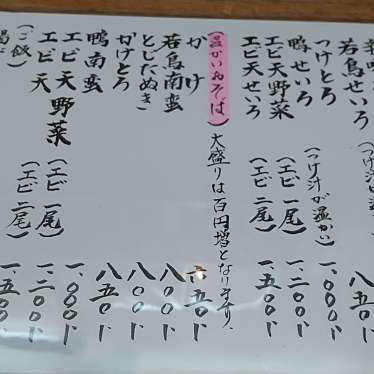 若鳥せいろ
つけとろ 八五〇円
鴨せいろ (つけ汁が温かい) 一、〇〇〇円
エビ天野菜 (エビ一尾) 一、二〇〇円
エビ天せいろ (エビ二尾) 一、五〇〇円
(温かいおそば) 大盛りは百円増となります。
かけ 六五〇円
若鳥南蛮 八〇〇円
としたぬき 八〇〇円
かけとろ 八五〇円
鴨南蛮 一、〇〇〇円
エビ天野菜 (エビ一尾) 一、二〇〇円
エビ天 (エビ二尾) 一、五〇〇円
(ご飯)